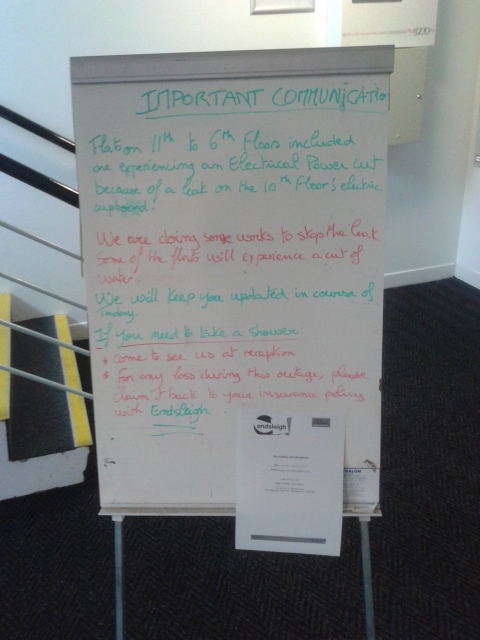 IMPORTANT COMMUNICATIO
Flats on 11th to 6th Floors included
are experiencing an Electrical Power cut
because of a leak on the 10th Floor's electric
cupboard.
We are doing some works to stop the leak
Some of the flats will experience a cut of
water.
We will keep you updated in course of
Today.
If you need to take a shower:
* Come to see us at reception
* For any loss during this outage, please
claim it back to your insurance policy
with Endsleigh
endsleigh